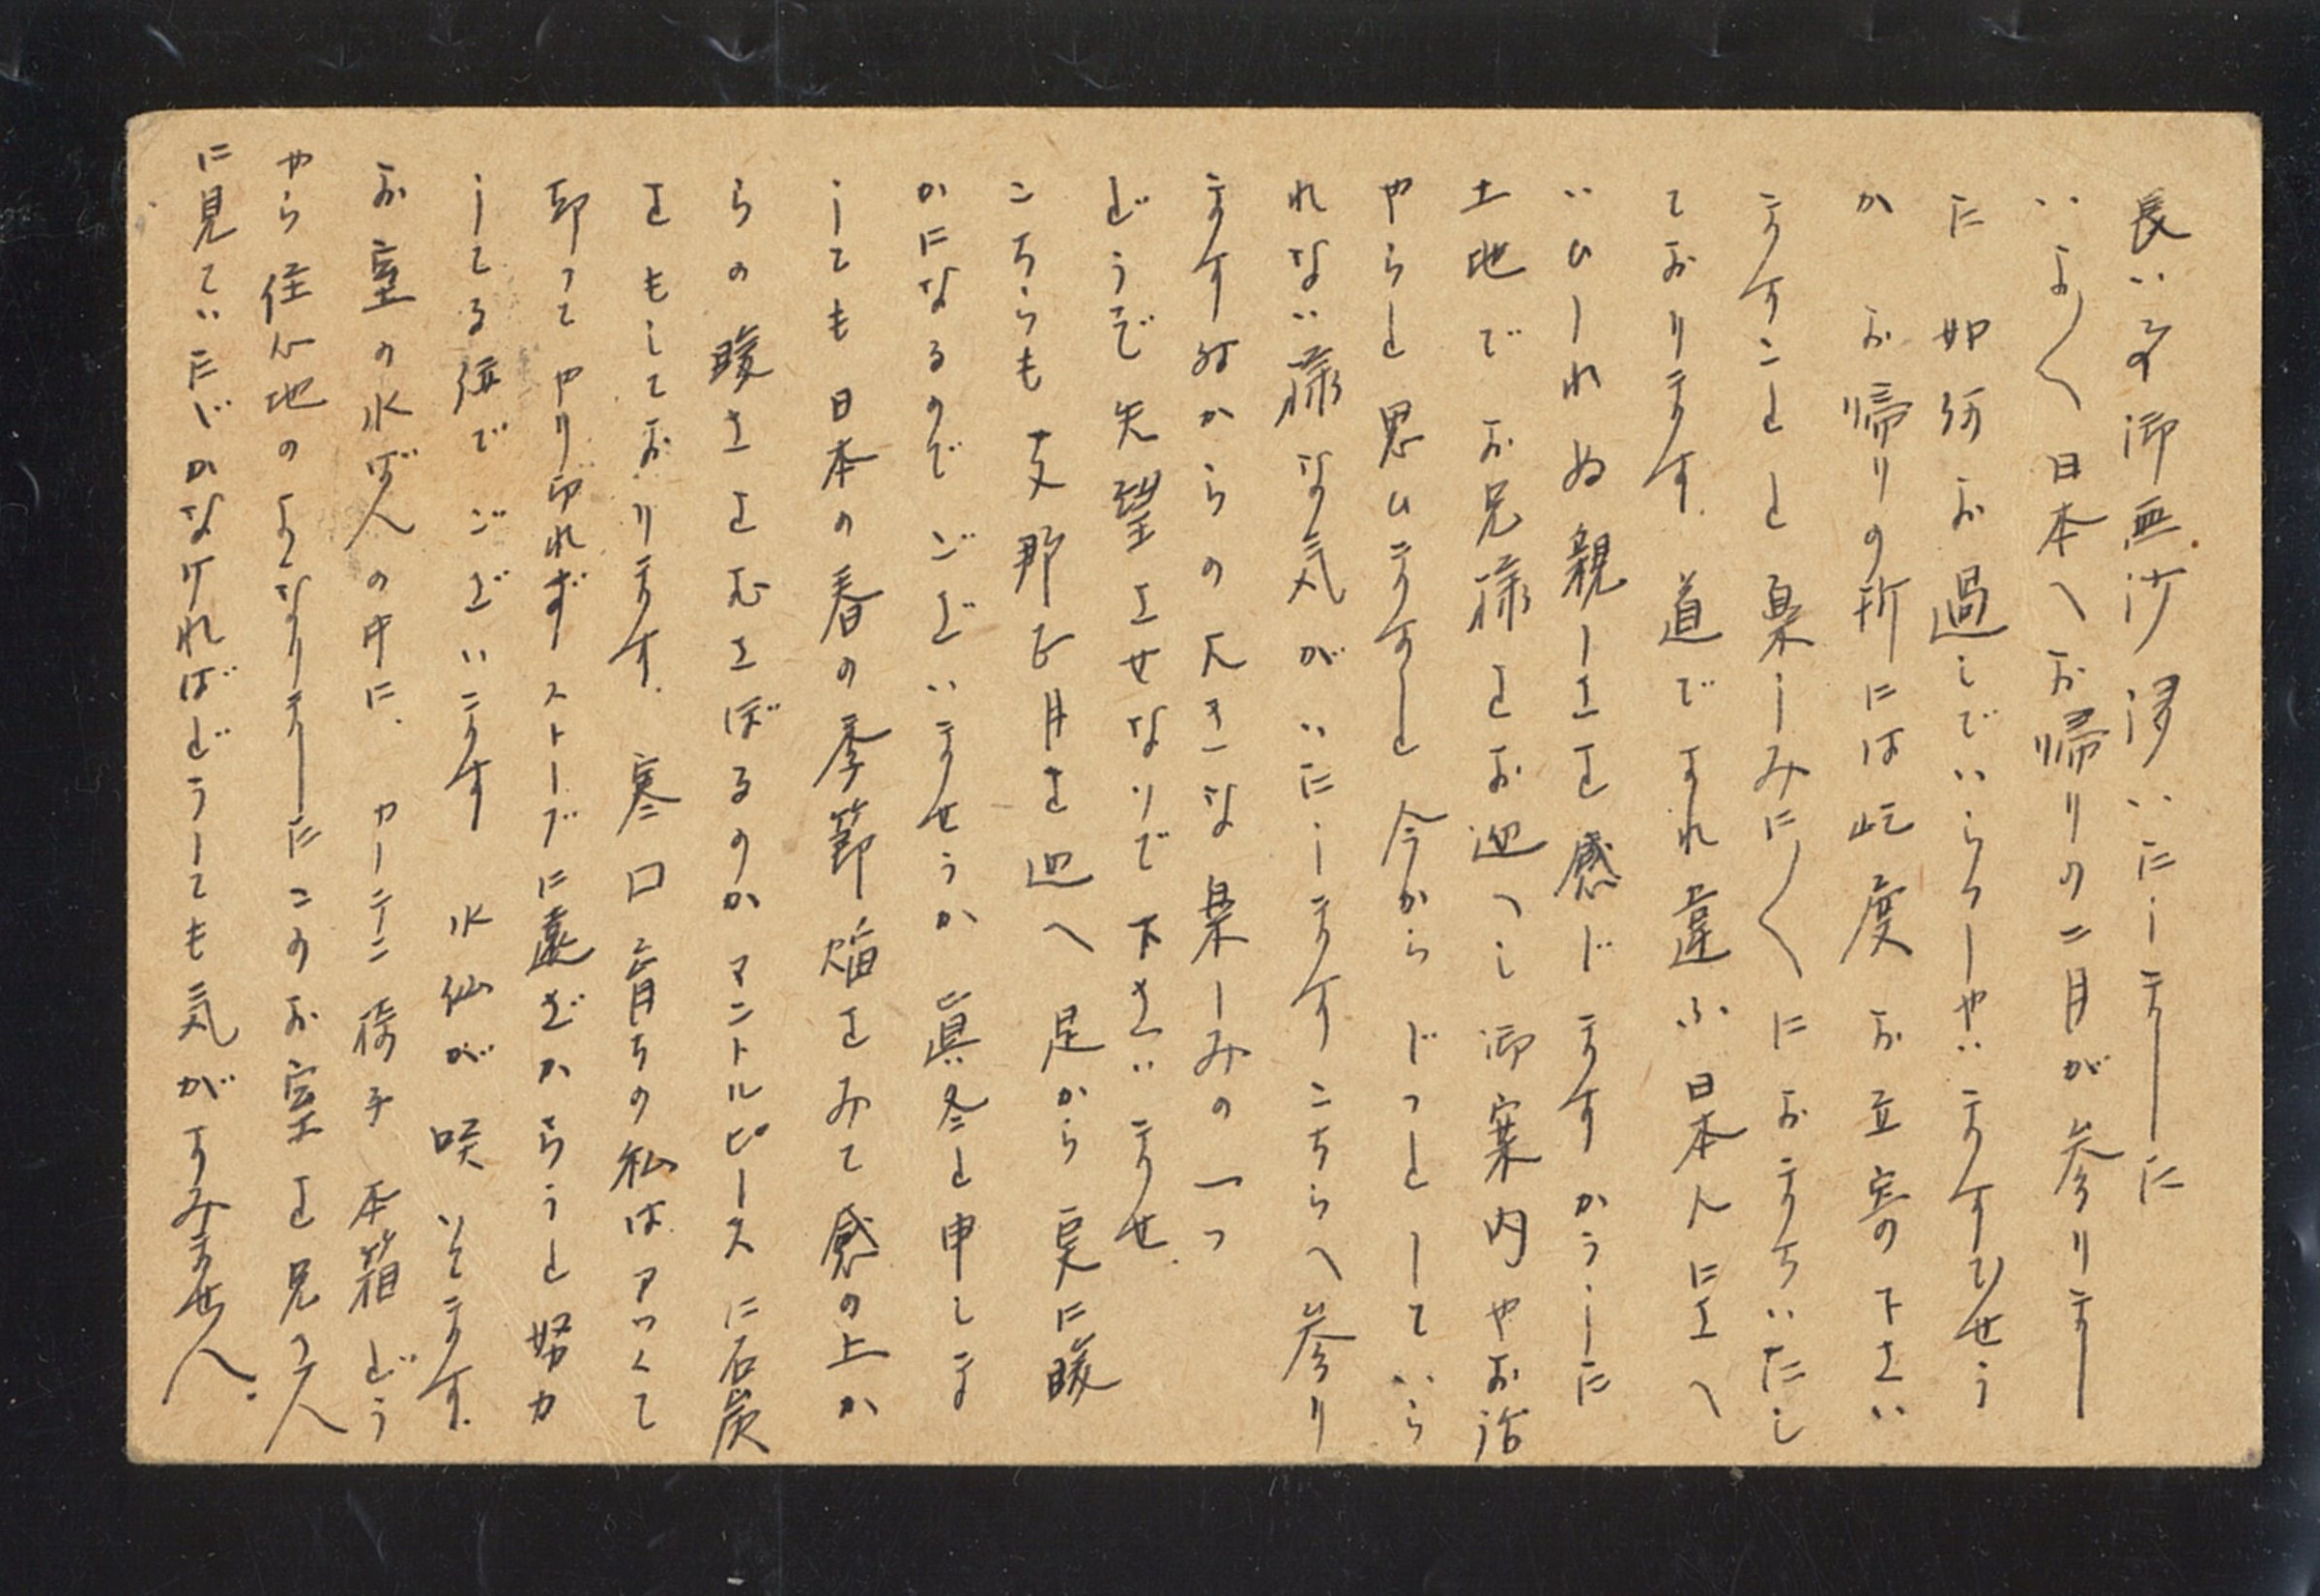 長い事御無沙汰いたしましたに
いよ〱日本へお帰りの二月が参りまし
た 如何お過しでいらつしやいますでせう
か お帰りの折には屹度お立寄り下さい
ますことと楽しみに〱におまちいたし
ております 道ですれ違ふ日本人にさへ
いひしれぬ親しさを感じますかうした
土地でお兄様をお迎へし御案内やお話
やらと思ひますと 今からじつとしていら
れない様な気がいたします こちらへ参り
ますぬからの大きな楽しみの一つ
どうぞ失望させないで下さいませ
こちらも支那正月を迎へ 足から戻に暖
かになるのでございませうか 真冬と申しま
しても日本の春の季節 焔をみて感の上か
らの暖さをむさぼるのか マントルピースに石炭
をもしております 寒口育ちの私はアつくて
却つてやり切れず ストーブに遠ざからうと努力
してる位でございます 水仙が咲いてます
お室の水ばんの中に カーテン 椅子 本箱 どう
やら住心地のよくなりましたこのお室を兄さん
に見ていたゞかなければどうしても気がすみません